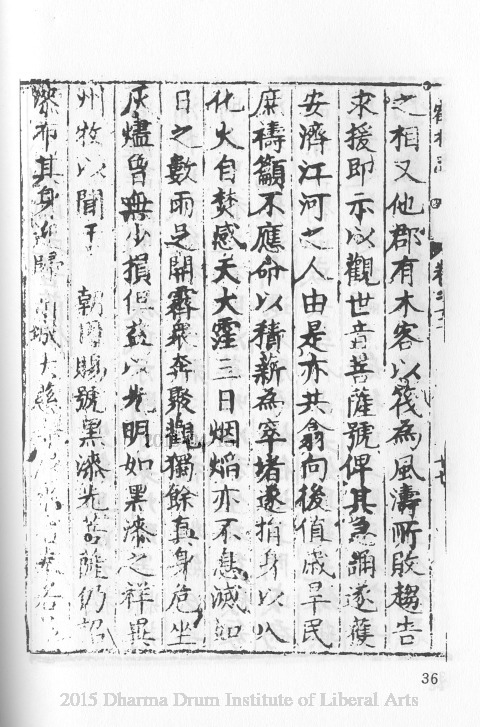 之相又他郡有木客以筏為風濤所敗趨告
求援即示以觀世音菩薩號俾其急誦遂獲
安濟江河之人由是亦共翕向後值歲旱民
庶禱籲不應命以積薪為窣堵遂捐身以火
化火自焚感天大霔三日烟焰亦不息滅如
日之數雨足開霽衆奔聚觀獨餘真身危坐
灰燼曾無少損但益以光明如黑漆之祥異
州牧以聞于 朝爵賜號黑漆光菩薩仍詔
漆布其身 歸 城大
36
2015 Dharma Drum Institute of Liberal Arts